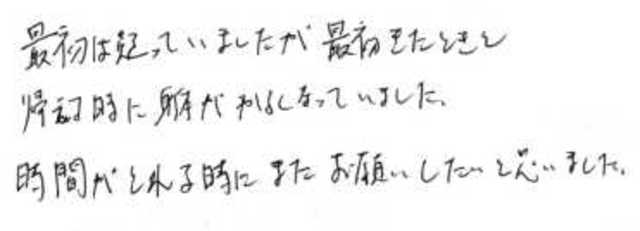 最初は疑っていましたが最初きたときと
帰る時に身体がかるくなっていました。
時間がとれる時にまたお願いしたいと思いました。